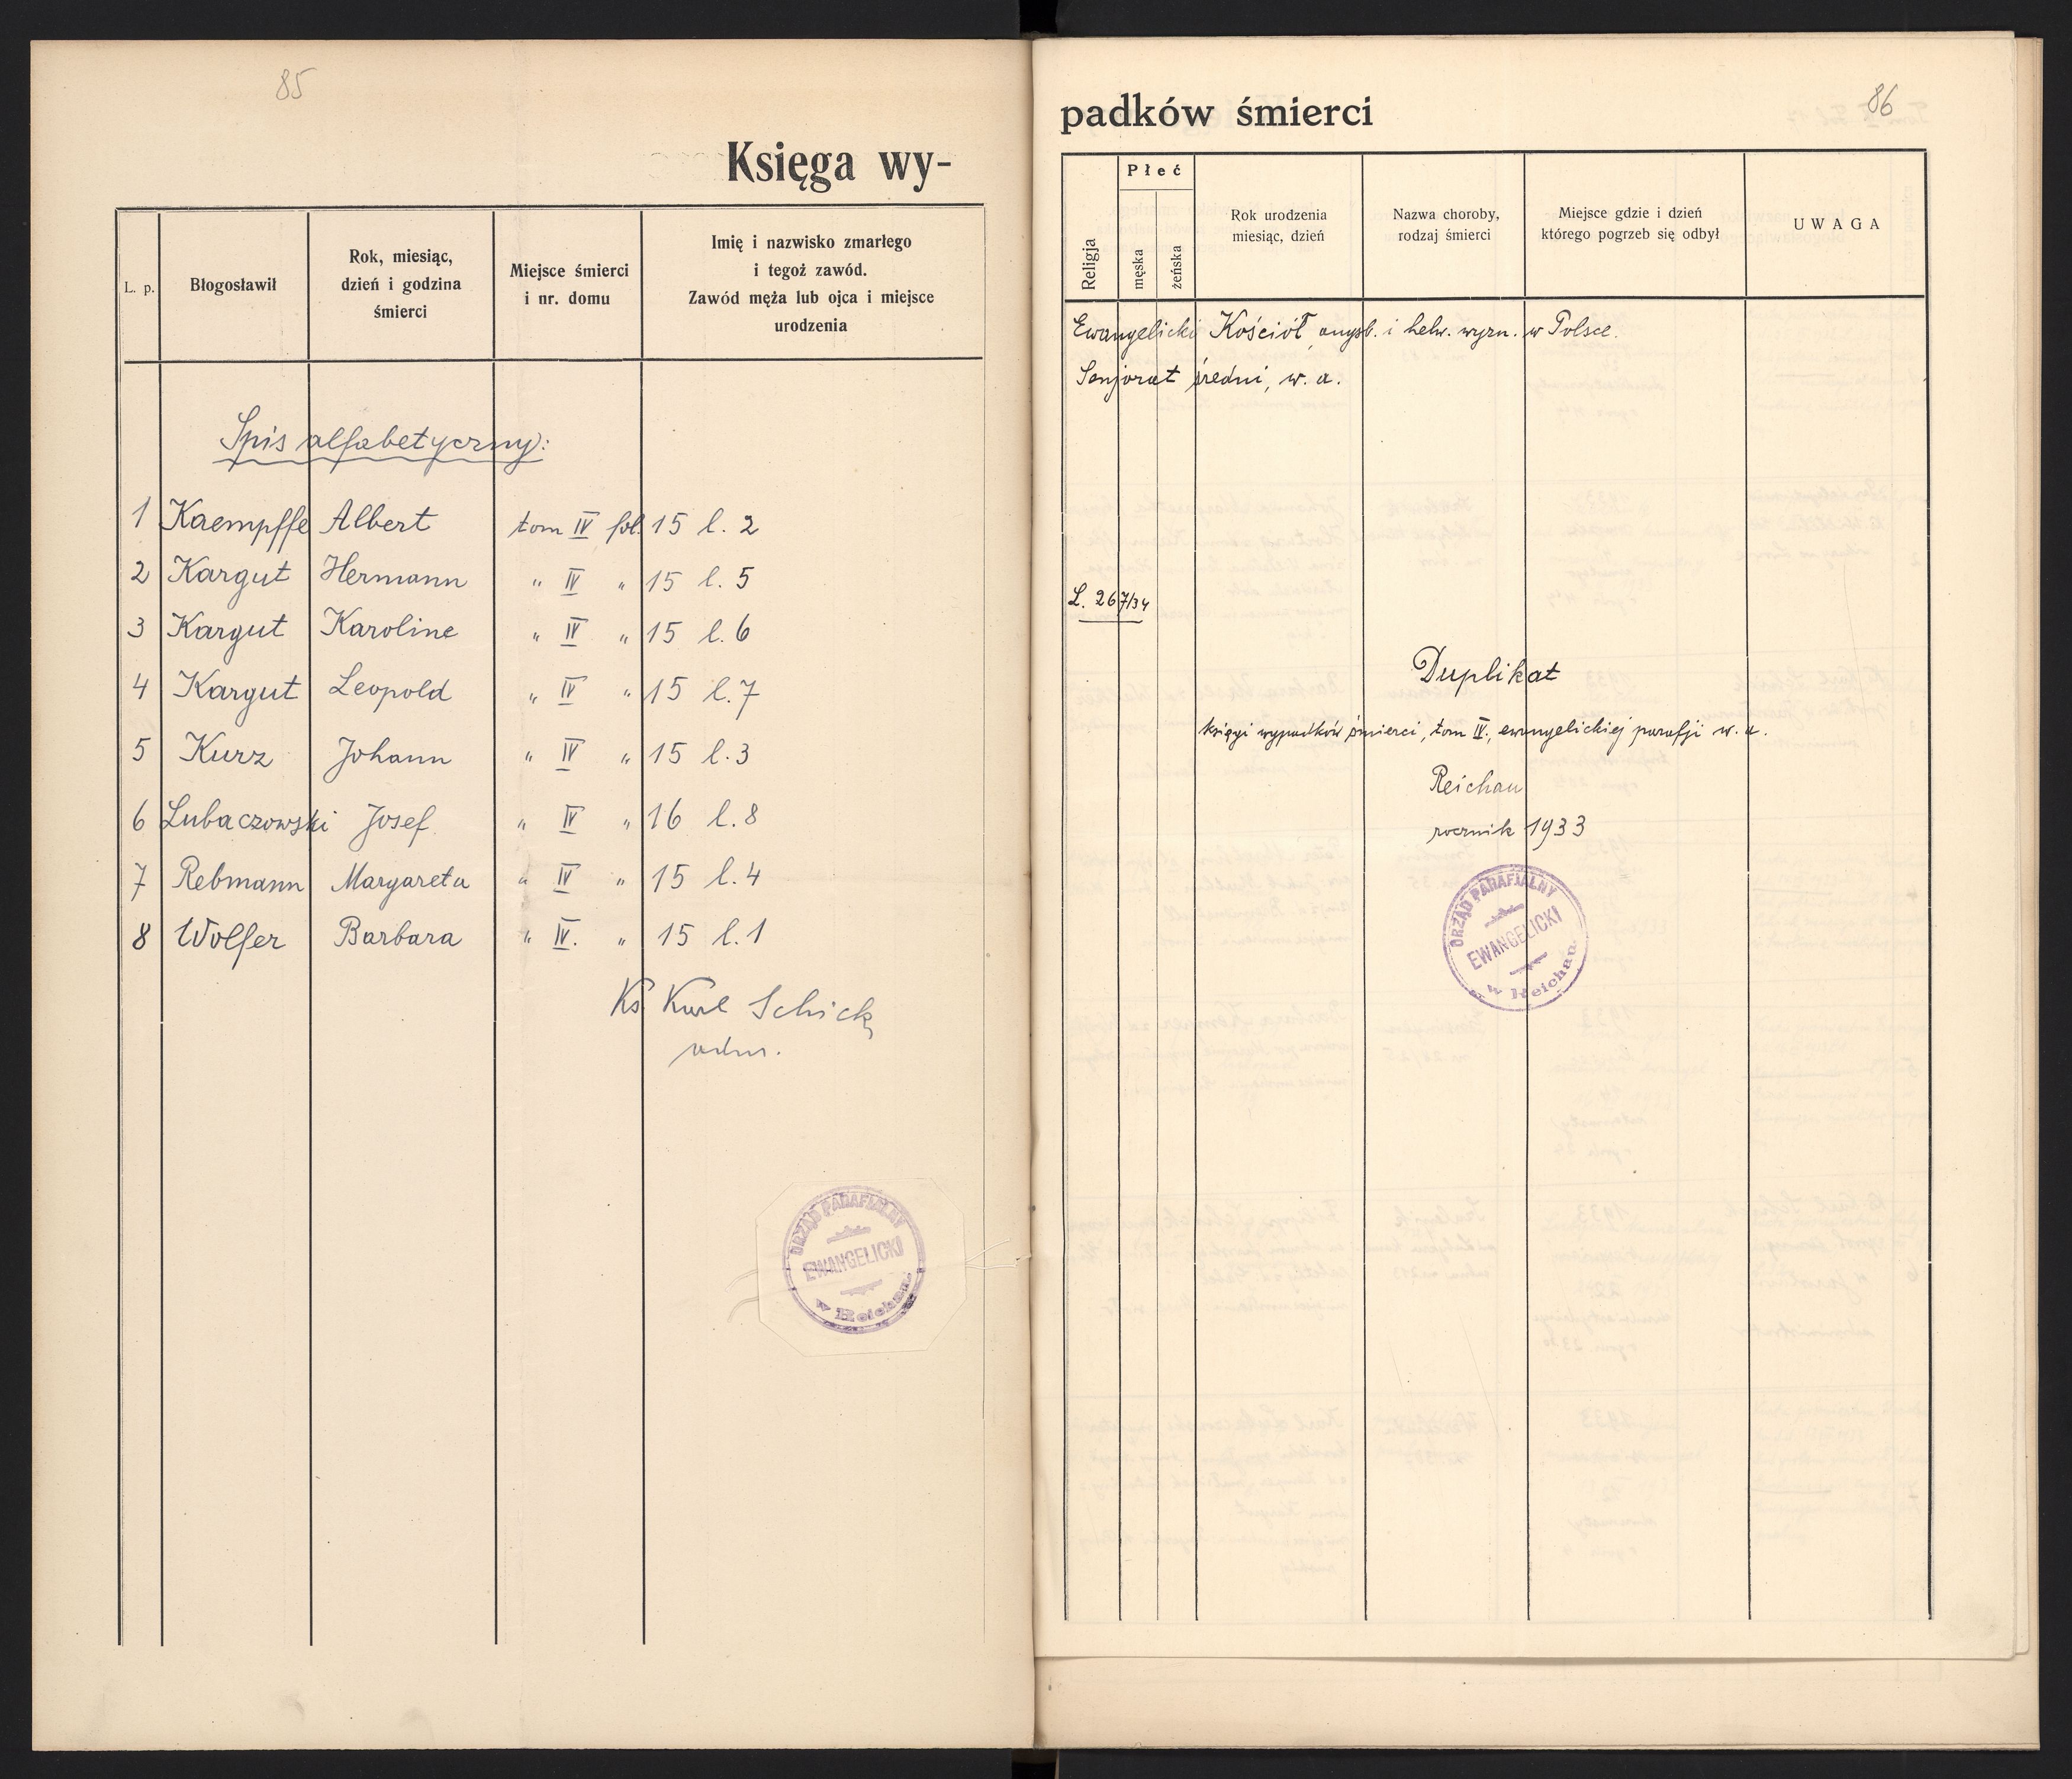 85
Księga wy-
L. p.
Błogosławił
Rok, miesiąc,
dzień i godzina
śmierci
Miejsce śmierci
i nr. domu
Imię i nazwisko zmarłego
i tegoż zawód.
Zawód męża lub ojca i miejsce
urodzenia
Spis alfabetyczny:
1 Kaempffe Albert tom IV fol. 15 l. 2
2 Kargut Hermann " IV " 15 l. 5
3 Kargut Karoline " IV " 15 l. 6
4 Kargut Leopold " IV " 15 l. 7
5 Kurz Johann " IV " 15 l. 3
6 Lubaczowski Josef " IV " 16 l. 8
7 Rebmann Margareta " IV " 15 l. 4
8 Wolfer Barbara " IV. " 15 l. 1
Ks. Karl Schick
adm.
URZĄD PARAFIALNY
EWANGELICKI
w Reichau.
86
padków śmierci
Religja
Płeć
męska
żeńska
Rok urodzenia
miesiąc, dzień
Nazwa choroby,
rodzaj śmierci
Miejsce gdzie i dzień
którego pogrzeb się odbył
UWAGA
Ewangelicki Kościół augsb. i helw. wyzn. w Polsce.
Senjorat średni, w. a.
L. 267/34
Duplikat
księgi wypadków śmierci, tom IV., ewangelickiej parafji w. a.
Reichau
rocznik 1933
URZĄD PARAFIALNY
EWANGELICKI
w Reichau.